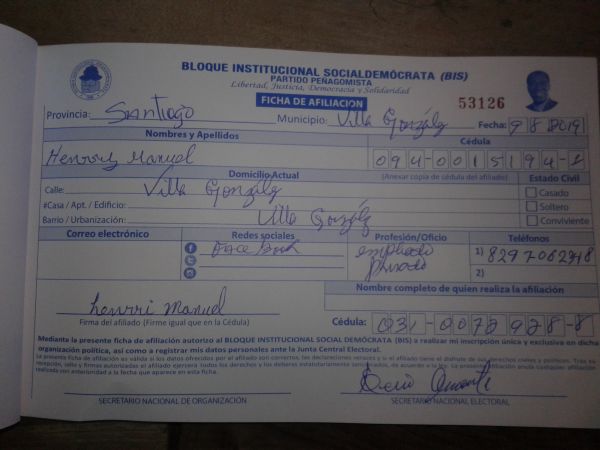 BLOQUE INSTITUCIONAL SOCIALDEMÓCRATA (BIS)
PARTIDO PEÑAGOMISTA
Libertad, Justicia, Democracia y Solidaridad
FICHA DE AFILIACION
53126
Provincia: Santiago Municipio: Villa González Fecha: 9 8 2019
Nombres y Apellidos Cédula
Henrriz Manuel 094-0015194-1
Domicilio Actual (Anexar copia de cédula del afiliado) Estado Civil
Calle: Villa González Casado
#Casa / Apt. / Edificio: Soltero
Barrio / Urbanización: Villa González Conviviente
Correo electrónico Redes sociales Profesión/Oficio Teléfonos
Face Book empleado 1) 8297062248
privado 2)
Nombre completo de quien realiza la afiliación
henrri manuel
Firma del afiliado (Firme igual que en la Cédula) Cédula: 031-0072928-8
Mediante la presente ficha de afiliación autorizo al BLOQUE INSTITUCIONAL SOCIAL DEMÓCRATA (BIS) a realizar mi inscripción única y exclusiva en dicha
organización política, así como a registrar mis datos personales ante la Junta Central Electoral.
La presente ficha de afiliación es válida si los datos ofrecidos por el afiliado son correctos, las declaraciones veraces y si el afiliado tiene el disfrute de sus derechos civiles y políticos. Tras su
recepción, sello y firmas autorizadas el afiliado ejercerá todos los derechos y los deberes estatutariamente consignados, de acuerdo a la ley. La presente afiliación anula cualquier afiliación
realizada con anterioridad a la fecha que aparece en esta ficha.
SECRETARIO NACIONAL DE ORGANIZACIÓN SECRETARIO NACIONAL ELECTORAL